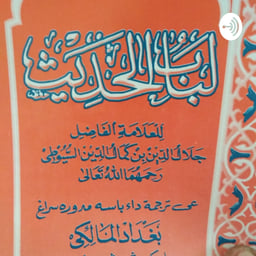 لباب الحديث
للعلامة الفاضل
جلال الدين بن كمال الدين السيوطي
رحمهما الله تعالى
عى ترجمة داء باسه مدوره سراغ
بغداد المالكي